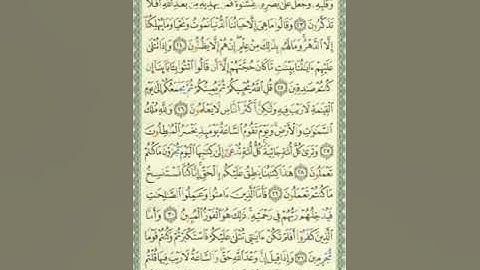 وَقَلْبِهِ وَجَعَلَ عَلَىٰ بَصَرِهِ غِشَٰوَةً فَمَن يَهْدِيهِ مِنۢ بَعْدِ ٱللَّهِ أَفَلَا
تَذَكَّرُونَ ٢٣ وَقَالُوا۟ مَا هِىَ إِلَّا حَيَاتُنَا ٱلدُّنْيَا نَمُوتُ وَنَحْيَا وَمَا يُهْلِكُنَآ
إِلَّا ٱلدَّهْرُ وَمَا لَهُم بِذَٰلِكَ مِنْ عِلْمٍ إِنْ هُمْ إِلَّا يَظُنُّونَ ٢٤ وَإِذَا تُتْلَىٰ
عَلَيْهِمْ ءَايَٰتُنَا بَيِّنَٰتٍ مَّا كَانَ حُجَّتَهُمْ إِلَّآ أَن قَالُوا۟ ٱئْتُوا۟ بِـَٔابَآئِنَآ إِن
كُنتُمْ صَٰدِقِينَ ٢٥ قُلِ ٱللَّهُ يُحْيِيكُمْ ثُمَّ يُمِيتُكُمْ ثُمَّ يَجْمَعُكُمْ إِلَىٰ يَوْمِ
ٱلْقِيَٰمَةِ لَا رَيْبَ فِيهِ وَلَٰكِنَّ أَكْثَرَ ٱلنَّاسِ لَا يَعْلَمُونَ ٢٦ وَلِلَّهِ مُلْكُ
ٱلسَّمَٰوَٰتِ وَٱلْأَرْضِ وَيَوْمَ تَقُومُ ٱلسَّاعَةُ يَوْمَئِذٍ يَخْسَرُ ٱلْمُبْطِلُونَ
٢٧ وَتَرَىٰ كُلَّ أُمَّةٍ جَاثِيَةً كُلُّ أُمَّةٍ تُدْعَىٰٓ إِلَىٰ كِتَٰبِهَا ٱلْيَوْمَ تُجْزَوْنَ مَا كُنتُمْ
تَعْمَلُونَ ٢٨ هَٰذَا كِتَٰبُنَا يَنطِقُ عَلَيْكُم بِٱلْحَقِّ إِنَّا كُنَّا نَسْتَنسِخُ
مَا كُنتُمْ تَعْمَلُونَ ٢٩ فَأَمَّا ٱلَّذِينَ ءَامَنُوا۟ وَعَمِلُوا۟ ٱلصَّٰلِحَٰتِ
فَيُدْخِلُهُمْ رَبُّهُمْ فِى رَحْمَتِهِۦ ذَٰلِكَ هُوَ ٱلْفَوْزُ ٱلْمُبِينُ ٣٠ وَأَمَّا
ٱلَّذِينَ كَفَرُوٓا۟ أَفَلَمْ تَكُنْ ءَايَٰتِى تُتْلَىٰ عَلَيْكُمْ فَٱسْتَكْبَرْتُمْ وَكُنتُمْ قَوْمًا
مُّجْرِمِينَ ٣١ وَإِذَا قِيلَ إِنَّ وَعْدَ ٱللَّهِ حَقٌّ وَٱلسَّاعَةُ لَا رَيْبَ فِيهَا قُلْتُم